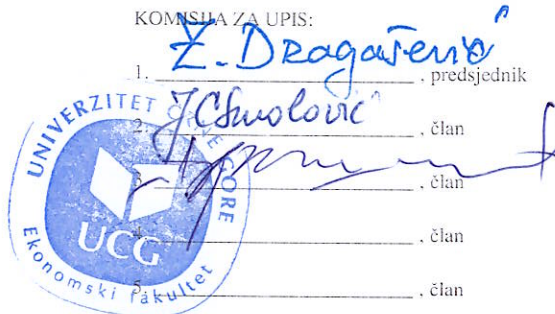 KOMISIJA ZA UPIS:
1. Z. Dragašević , predsjednik
2. , član
3. , član
4. , član
5. , član
UNIVERZITET CRNE GORE
UCG
Ekonomski fakultet